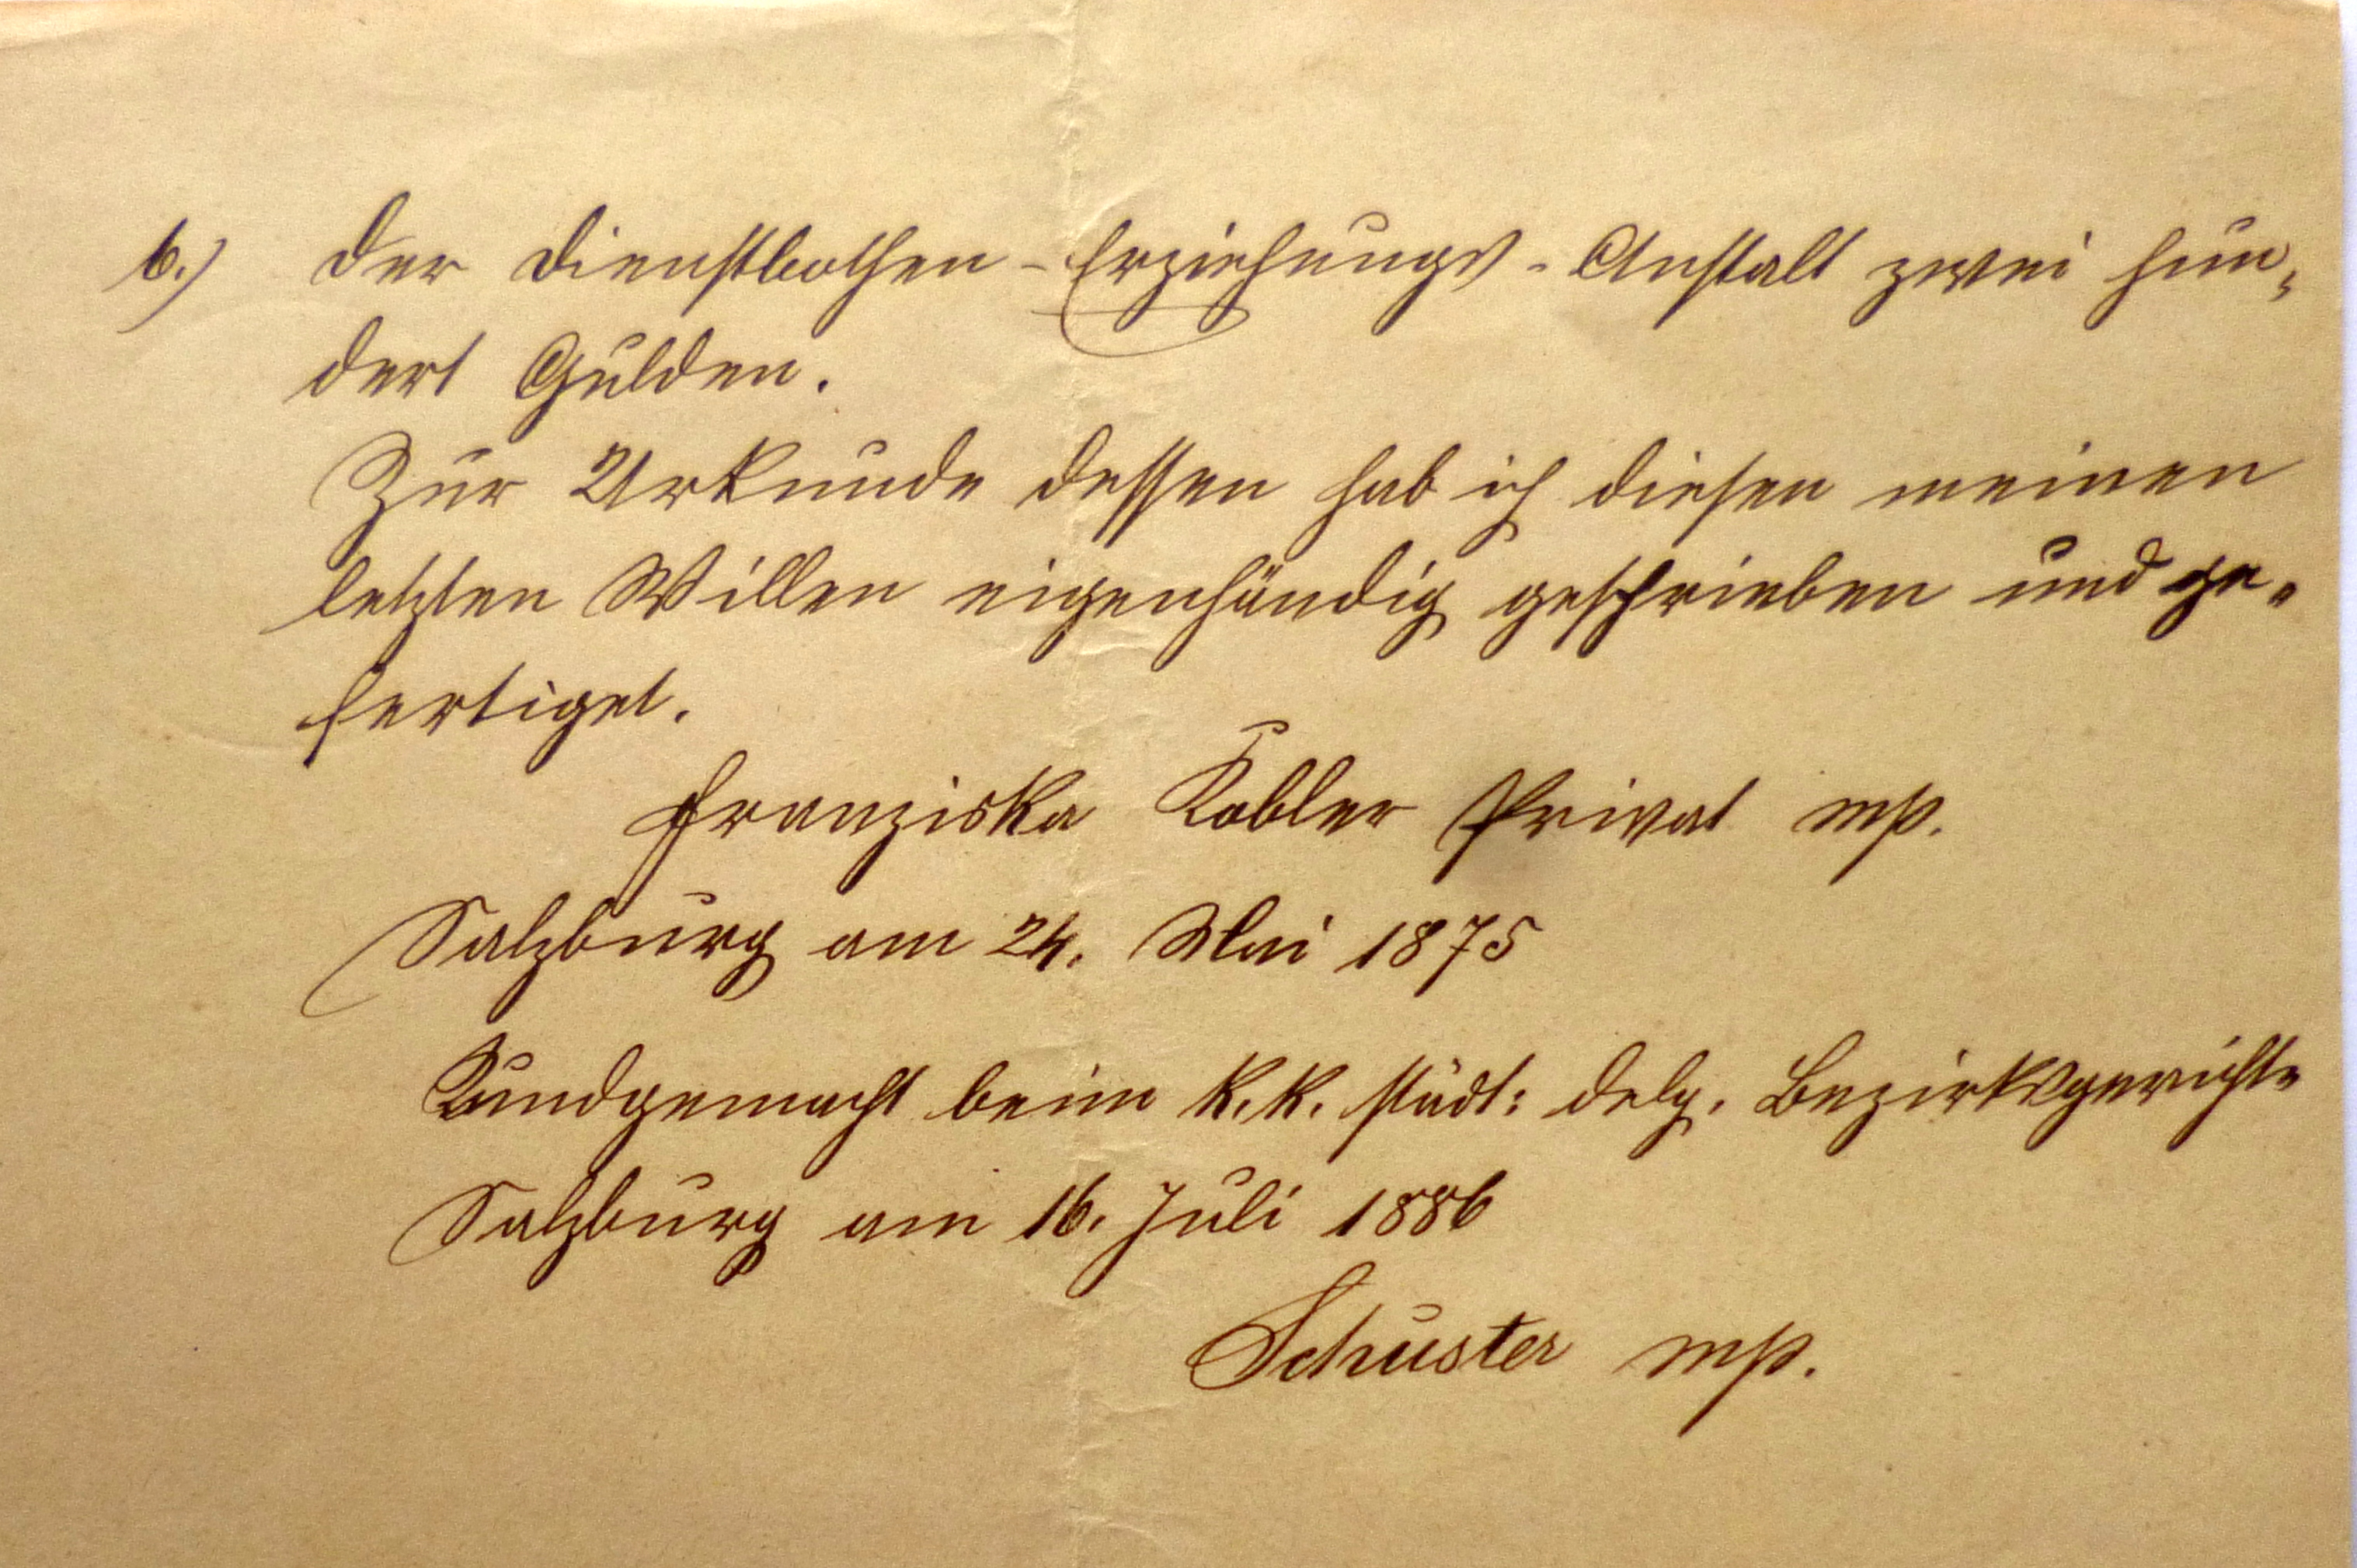 6.) Der Dienstbothen-Erziehungs-Anstalt zwei hun-
dert Gulden.
Zur Urkunde dessen hab ich diesen meinen
letzten Willen eigenhändig geschrieben und ge-
fertiget.
Franziska Kobler Privat mp.
Salzburg am 24. Mai 1875
Kundgemacht beim k. k. städt: delg. Bezirksgerichte
Salzburg am 16. Juli 1886
Schuster mp.